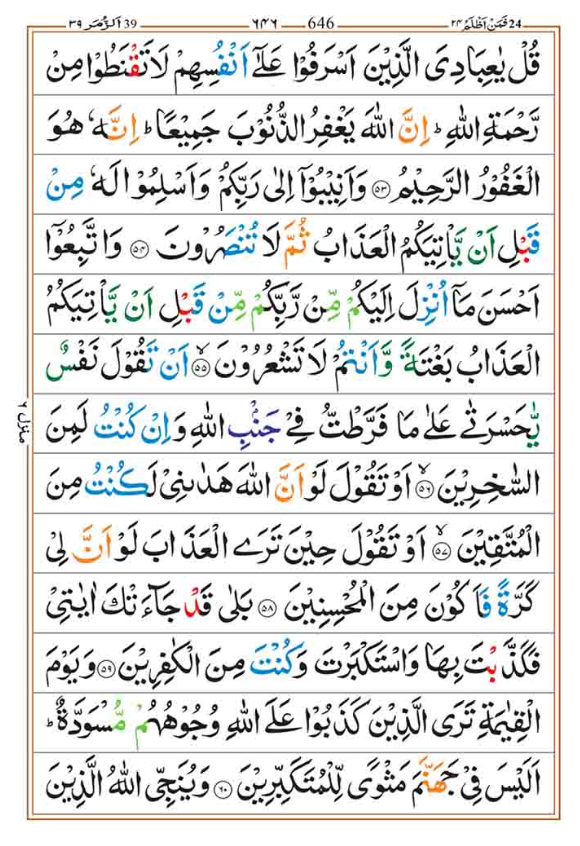 اَلزُّمَر ٣٩ 39 ــــ ٦٤٦ ــــ 646 ــــ فَمَنْ اَظْلَمُ ٢٤ 24
قُلْ يٰعِبَادِىَ الَّذِيْنَ اَسْرَفُوْا عَلٰٓى اَنْفُسِهِمْ لَا تَقْنَطُوْا مِنْ
رَّحْمَةِ اللّٰهِ ؕ اِنَّ اللّٰهَ يَغْفِرُ الذُّنُوْبَ جَمِيْعًا ؕ اِنَّهٗ هُوَ
الْغَفُوْرُ الرَّحِيْمُ ﴿٥٣﴾ وَاَنِيْبُوْٓا اِلٰى رَبِّكُمْ وَاَسْلِمُوْا لَهٗ مِنْ
قَبْلِ اَنْ يَّاْتِيَكُمُ الْعَذَابُ ثُمَّ لَا تُنْصَرُوْنَ ﴿٥٤﴾ وَاتَّبِعُوْٓا
اَحْسَنَ مَاۤ اُنْزِلَ اِلَيْكُمْ مِّنْ رَّبِّكُمْ مِّنْ قَبْلِ اَنْ يَّاْتِيَكُمُ
الْعَذَابُ بَغْتَةً وَّاَنْتُمْ لَا تَشْعُرُوْنَ ﴿٥٥﴾ۙ اَنْ تَقُوْلَ نَفْسٌ
يّٰحَسْرَتٰى عَلٰى مَا فَرَّطْتُّ فِىْ جَنْۢبِ اللّٰهِ وَاِنْ كُنْتُ لَمِنَ
السّٰخِرِيْنَ ﴿٥٦﴾ۙ اَوْ تَقُوْلَ لَوْ اَنَّ اللّٰهَ هَدٰٮنِىْ لَكُنْتُ مِنَ
الْمُتَّقِيْنَ ﴿٥٧﴾ۙ اَوْ تَقُوْلَ حِيْنَ تَرَى الْعَذَابَ لَوْ اَنَّ لِىْ
كَرَّةً فَاَكُوْنَ مِنَ الْمُحْسِنِيْنَ ﴿٥٨﴾ بَلٰى قَدْ جَآءَتْكَ اٰيٰتِىْ
فَكَذَّبْتَ بِهَا وَاسْتَكْبَرْتَ وَكُنْتَ مِنَ الْكٰفِرِيْنَ ﴿٥٩﴾ وَيَوْمَ
الْقِيٰمَةِ تَرَى الَّذِيْنَ كَذَبُوْا عَلَى اللّٰهِ وُجُوْهُهُمْ مُّسْوَدَّةٌ ؕ
اَلَيْسَ فِىْ جَهَنَّمَ مَثْوًى لِّلْمُتَكَبِّرِيْنَ ﴿٦٠﴾ وَيُنَجِّى اللّٰهُ الَّذِيْنَ
منزل ٦